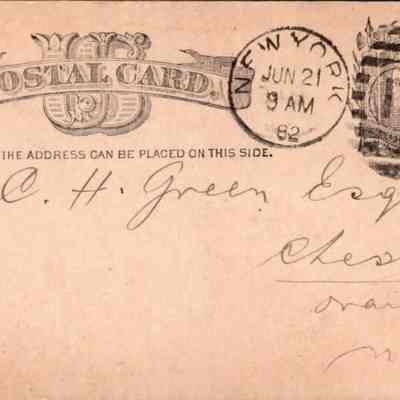 US
OSTAL CARD.
NEW YORK
JUN 21
9 AM
82
THE ADDRESS CAN BE PLACED ON THIS SIDE.
C. H. Green Esq
Ches